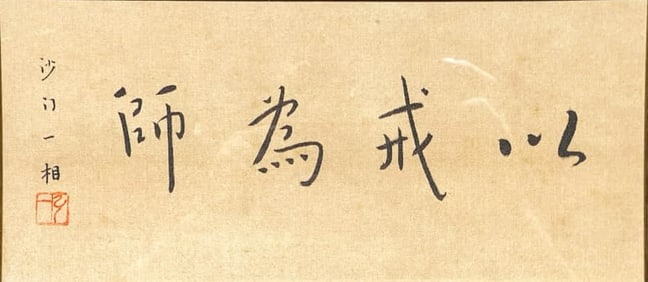 以戒為師
沙门一相